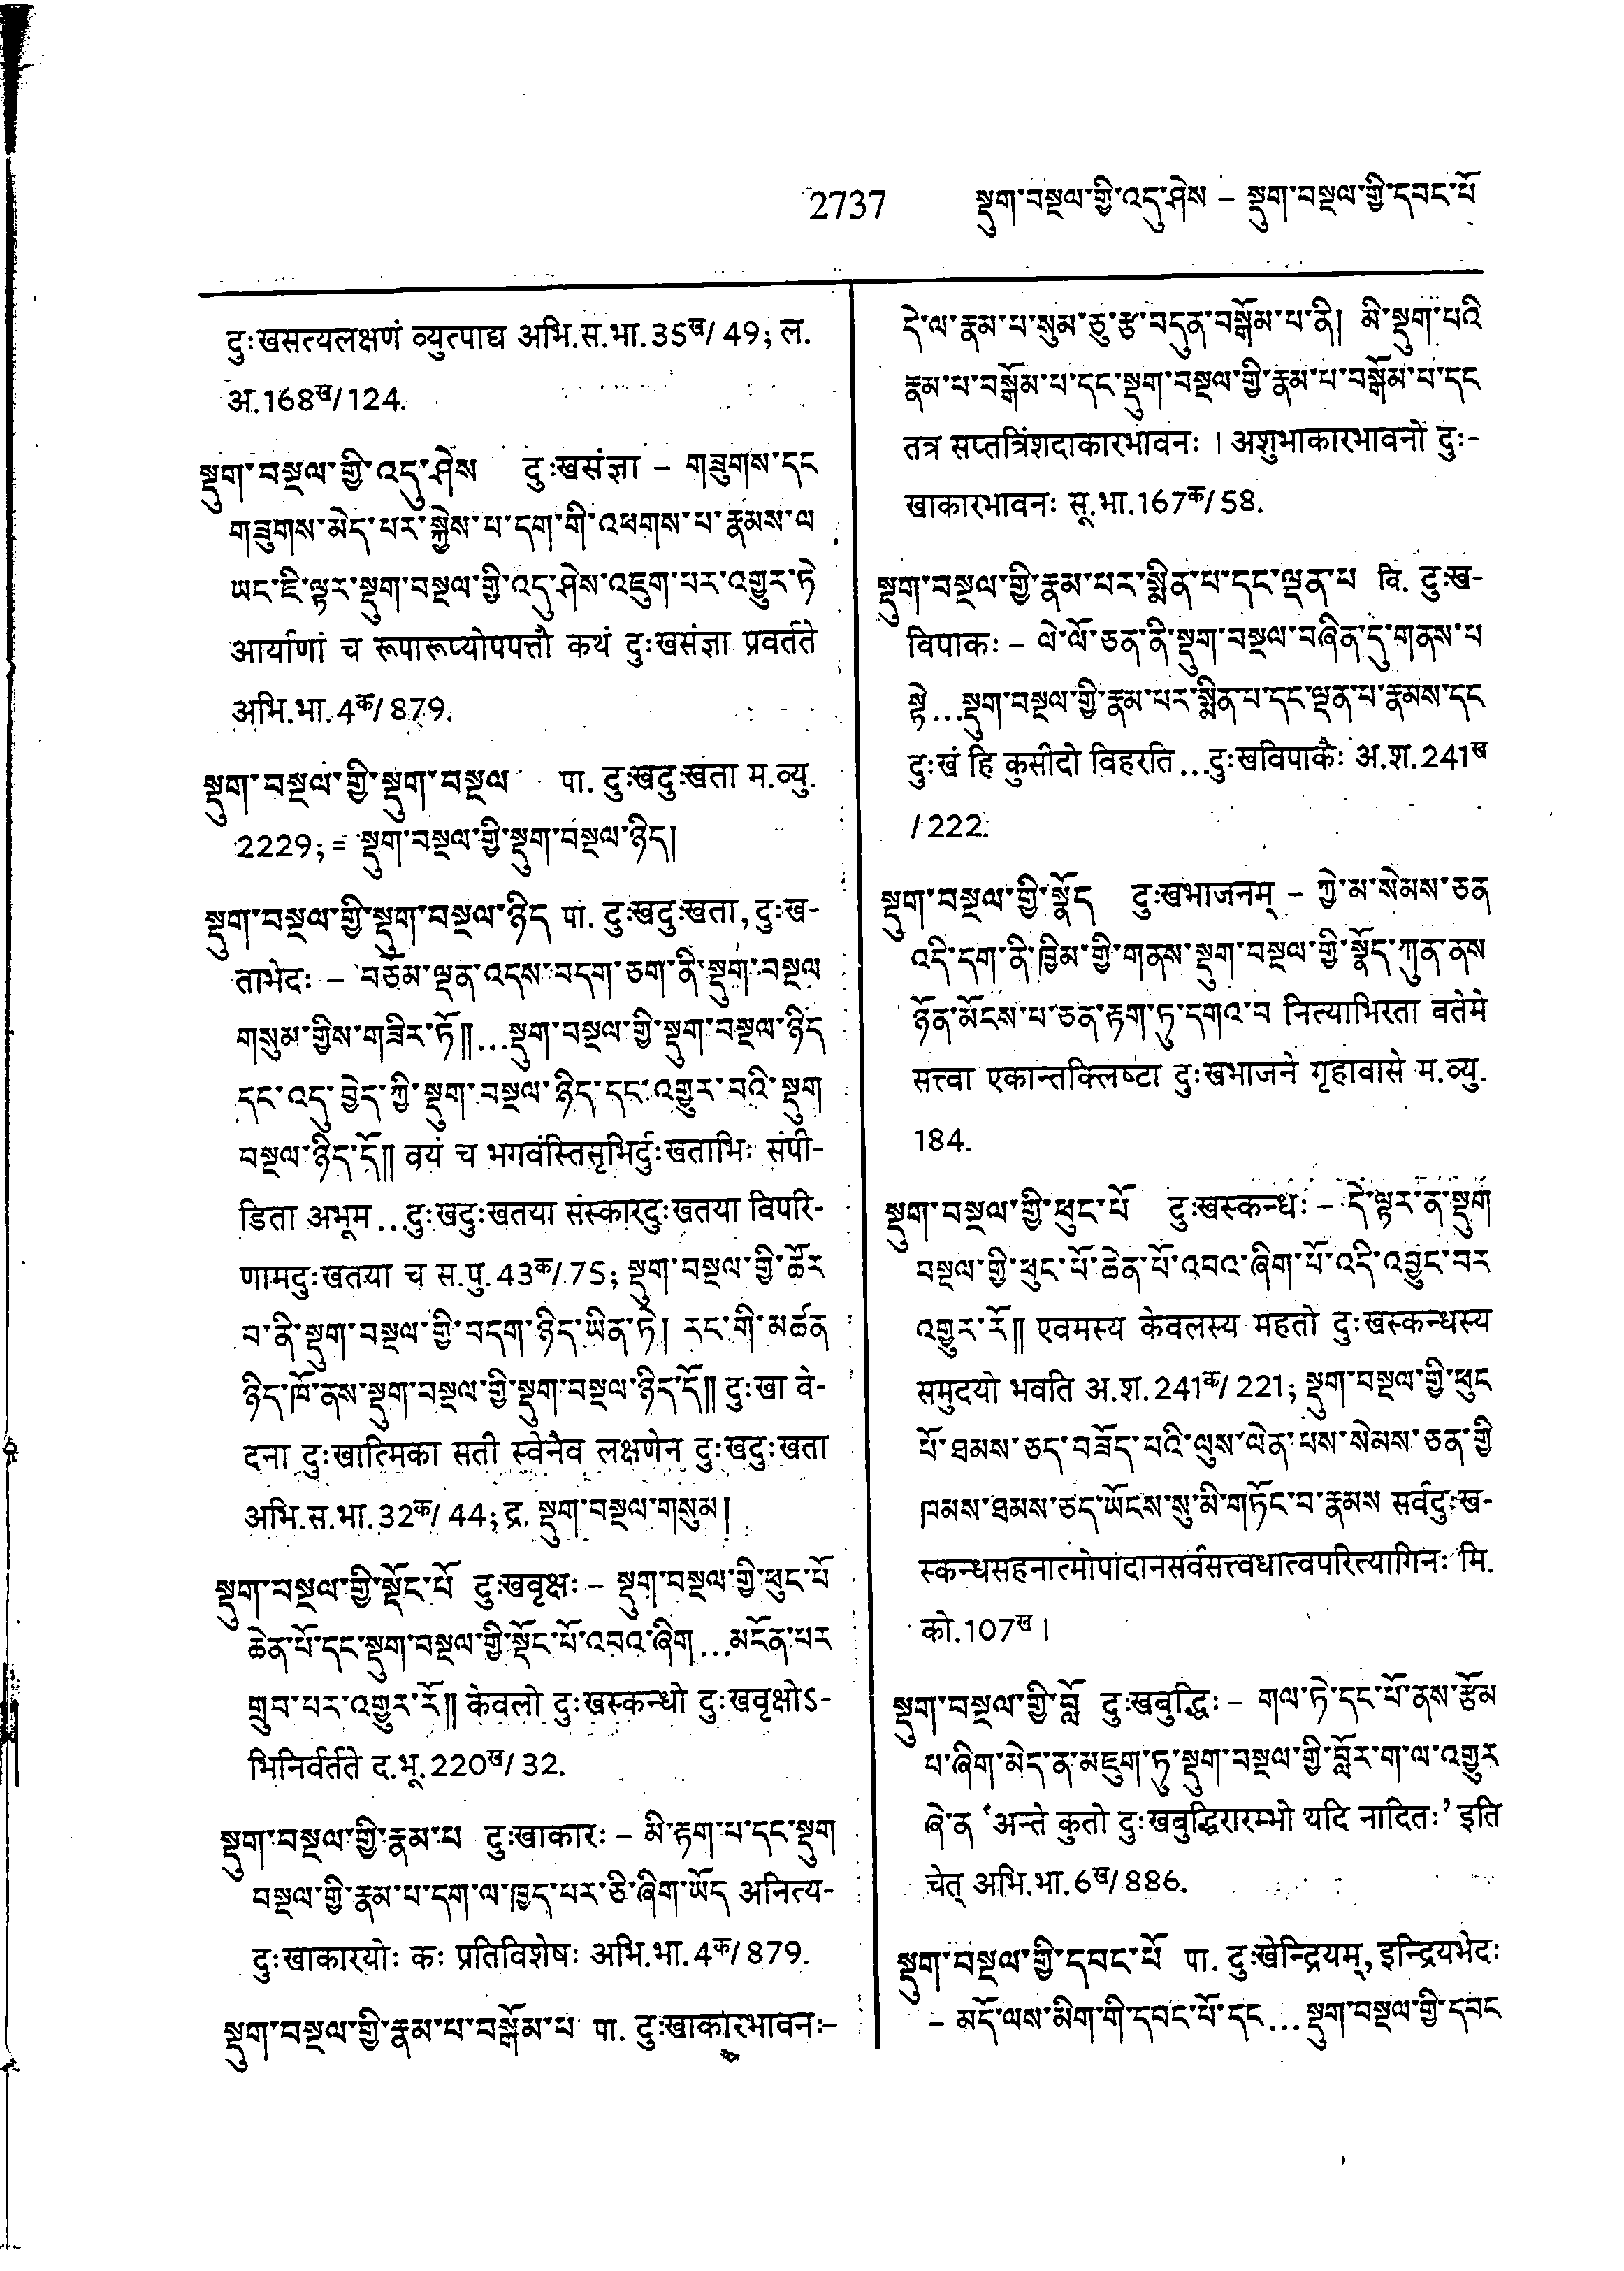 2737 སྡུག་བསྔལ་གྱི་འདུ་ཤེས – སྡུག་བསྔལ་གྱི་དབང་པོ
दुःखसत्यलक्षणं व्युत्पाद्य अभि.स.भा.35ख/49; ल.
अ.168ख/124.
སྡུག་བསྔལ་གྱི་འདུ་ཤེས दुःखसंज्ञा – གཟུགས་དང
གཟུགས་མེད་པར་སྐྱེས་པ་དག་གི་འཕགས་པ་རྣམས་ལ
ཡང་ཇི་ལྟར་སྡུག་བསྔལ་གྱི་འདུ་ཤེས་འཇུག་པར་འགྱུར་ཏེ
आर्याणां च रूपारूप्योपपत्तौ कथं दुःखसंज्ञा प्रवर्तते
अभि.भा.4क/879.
སྡུག་བསྔལ་གྱི་སྡུག་བསྔལ पा. दुःखदुःखता म.व्यु.
2229; = སྡུག་བསྔལ་གྱི་སྡུག་བསྔལ་ཉིད།
སྡུག་བསྔལ་གྱི་སྡུག་བསྔལ་ཉིད पा. दुःखदुःखता, दुःख-
ताभेदः – བཅོམ་ལྡན་འདས་བདག་ཅག་ནི་སྡུག་བསྔལ
གསུམ་གྱིས་གཟིར་ཏོ༎...སྡུག་བསྔལ་གྱི་སྡུག་བསྔལ་ཉིད
དང་འདུ་བྱེད་ཀྱི་སྡུག་བསྔལ་ཉིད་དང་འགྱུར་བའི་སྡུག
བསྔལ་ཉིད་དོ༎ वयं च भगवंस्तिसृभिर्दुःखताभिः संपी-
डिता अभूम...दुःखदुःखतया संस्कारदुःखतया विपरि-
णामदुःखतया च स.पु.43क/75; སྡུག་བསྔལ་གྱི་ཚོར
བ་ནི་སྡུག་བསྔལ་གྱི་བདག་ཉིད་ཡིན་ཏེ། རང་གི་མཚན
ཉིད་ཁོ་ནས་སྡུག་བསྔལ་གྱི་སྡུག་བསྔལ་ཉིད་དོ༎ दुःखा वे-
दना दुःखात्मिका सती स्वेनैव लक्षणेन दुःखदुःखता
अभि.स.भा.32क/44; द्र. སྡུག་བསྔལ་གསུམ།
སྡུག་བསྔལ་གྱི་སྡོང་པོ दुःखवृक्षः – སྡུག་བསྔལ་གྱི་ཕུང་པོ
ཆེན་པོ་དང་སྡུག་བསྔལ་གྱི་སྡོང་པོ་འབའ་ཞིག...མངོན་པར
གྲུབ་པར་འགྱུར་རོ༎ केवलो दुःखस्कन्धो दुःखवृक्षोऽ-
भिनिर्वर्तते द.भू.220ख/32.
སྡུག་བསྔལ་གྱི་རྣམ་པ दुःखाकारः – མི་རྟག་པ་དང་སྡུག
བསྔལ་གྱི་རྣམ་པ་དག་ལ་ཁྱད་པར་ཅི་ཞིག་ཡོད अनित्य-
दुःखाकारयोः कः प्रतिविशेषः अभि.भा.4क/879.
སྡུག་བསྔལ་གྱི་རྣམ་པ་བསྒོམ་པ पा. दुःखाकारभावनः–
དེ་ལ་རྣམ་པ་སུམ་ཅུ་རྩ་བདུན་བསྒོམ་པ་ནི། མི་སྡུག་པའི
རྣམ་པ་བསྒོམ་པ་དང་སྡུག་བསྔལ་གྱི་རྣམ་པ་བསྒོམ་པ་དང
तत्र सप्तत्रिंशदाकारभावनः । अशुभाकारभावनो दुः-
खाकारभावनः सू.भा.167क/58.
སྡུག་བསྔལ་གྱི་རྣམ་པར་སྨིན་པ་དང་ལྡན་པ वि. दुःख-
विपाकः – ལེ་ལོ་ཅན་ནི་སྡུག་བསྔལ་བཞིན་དུ་གནས་པ
སྟེ...སྡུག་བསྔལ་གྱི་རྣམ་པར་སྨིན་པ་དང་ལྡན་པ་རྣམས་དང
दुःखं हि कुसीदो विहरति...दुःखविपाकैः अ.श.241ख
/222.
སྡུག་བསྔལ་གྱི་སྣོད दुःखभाजनम् – ཀྱེ་མ་སེམས་ཅན
འདི་དག་ནི་ཁྱིམ་གྱི་གནས་སྡུག་བསྔལ་གྱི་སྣོད་ཀུན་ནས
ཉོན་མོངས་པ་ཅན་རྟག་ཏུ་དགའ་བ नित्याभिरता बतेमे
सत्त्वा एकान्तक्लिष्टा दुःखभाजने गृहावासे म.व्यु.
184.
སྡུག་བསྔལ་གྱི་ཕུང་པོ दुःखस्कन्धः – དེ་ལྟར་ན་སྡུག
བསྔལ་གྱི་ཕུང་པོ་ཆེན་པོ་འབའ་ཞིག་པོ་འདི་འབྱུང་བར
འགྱུར་རོ༎ एवमस्य केवलस्य महतो दुःखस्कन्धस्य
समुदयो भवति अ.श.241क/221; སྡུག་བསྔལ་གྱི་ཕུང
པོ་ཐམས་ཅད་བཟོད་པའི་ལུས་ལེན་པས་སེམས་ཅན་གྱི
ཁམས་ཐམས་ཅད་ཡོངས་སུ་མི་གཏོང་བ་རྣམས सर्वदुःख-
स्कन्धसहनात्मोपादानसर्वसत्त्वधात्वपरित्यागिनः मि.
को.107ख ।
སྡུག་བསྔལ་གྱི་བློ दुःखबुद्धिः – གལ་ཏེ་དང་པོ་ནས་རྩོམ
པ་ཞིག་མེད་ན་མཇུག་ཏུ་སྡུག་བསྔལ་གྱི་བློར་ག་ལ་འགྱུར
ཞེ་ན ‘अन्ते कुतो दुःखबुद्धिरारम्भो यदि नादितः’ इति
चेत् अभि.भा.6ख/886.
སྡུག་བསྔལ་གྱི་དབང་པོ पा. दुःखेन्द्रियम्, इन्द्रियभेदः
– མདོ་ལས་མིག་གི་དབང་པོ་དང...སྡུག་བསྔལ་གྱི་དབང